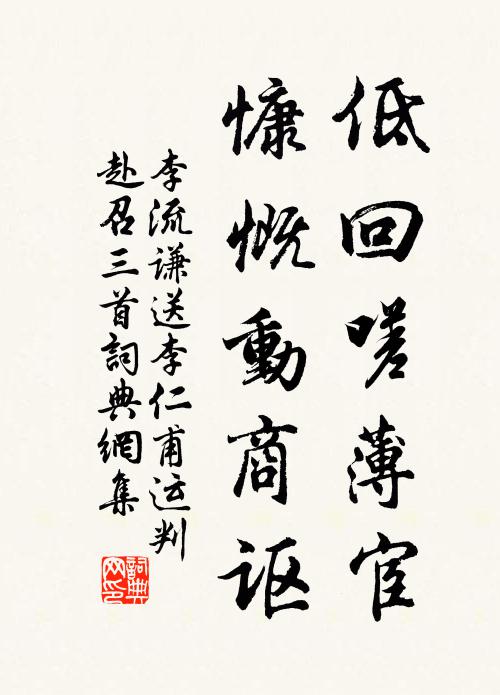 低回嗟薄宦
慷慨動商讴
李流謙送李仁甫运判
赴召三首詞典網集
詞典
网印